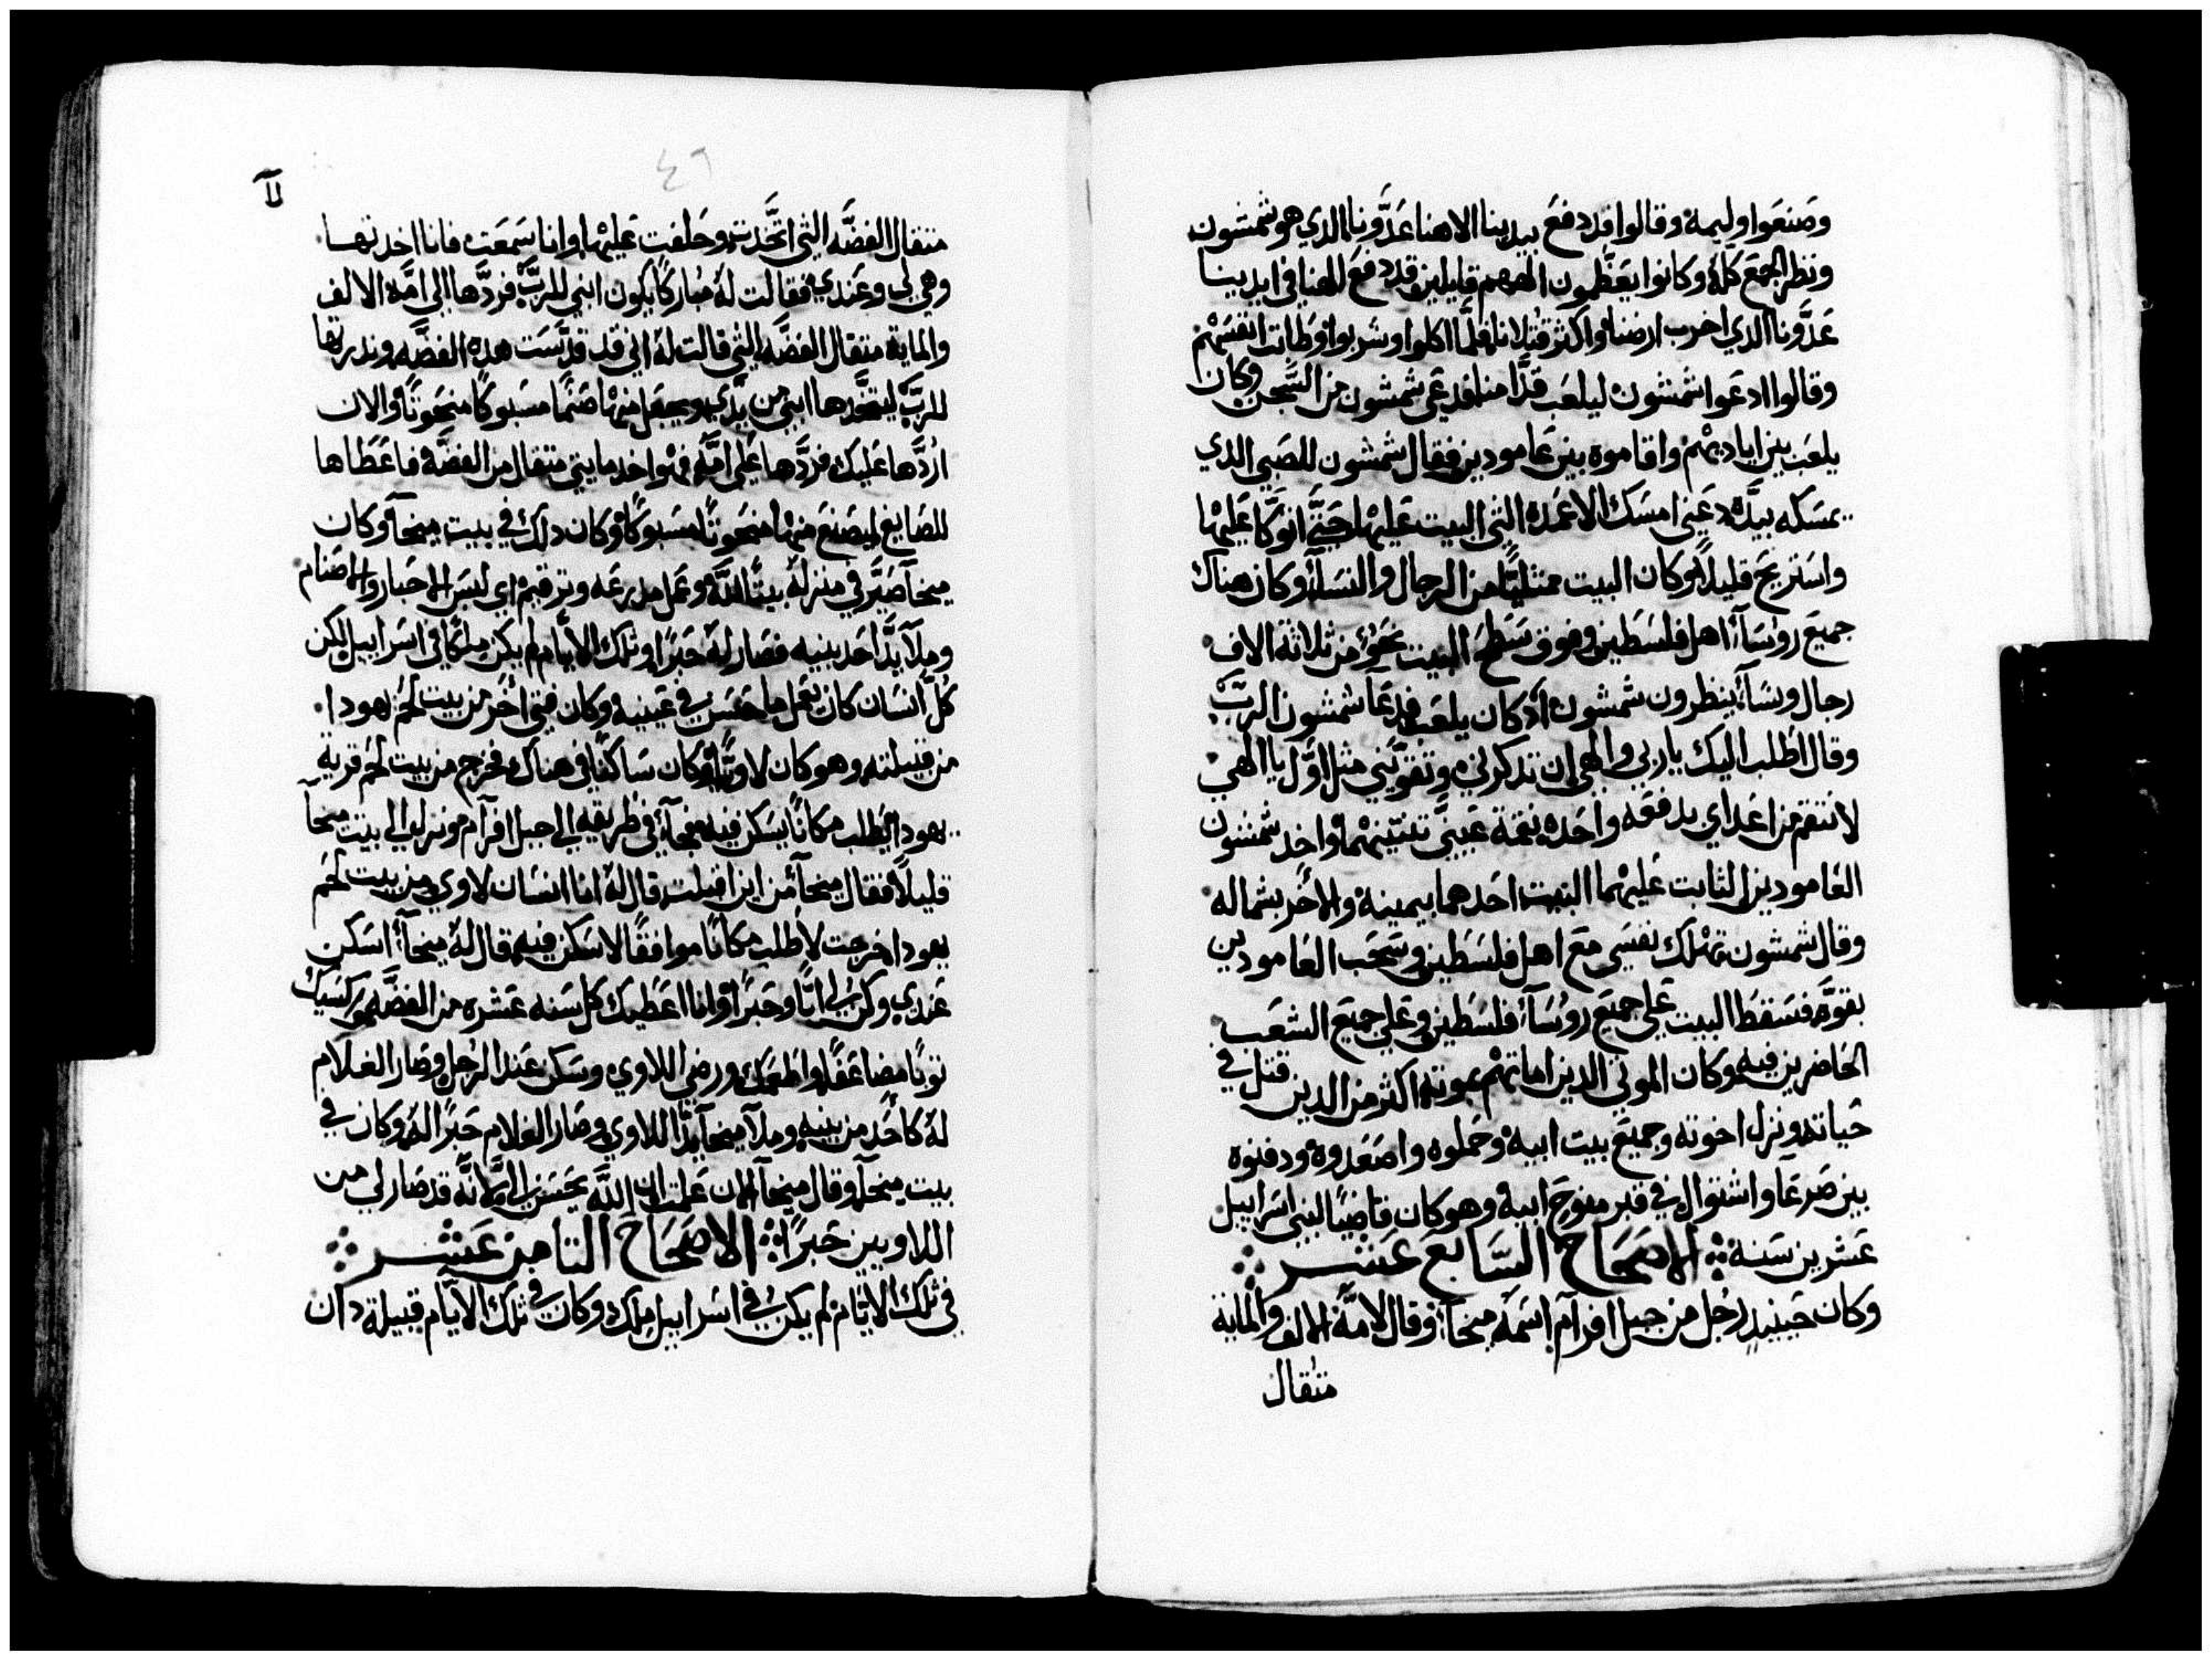 وصنعوا وليمة وقالوا قد دفع بيدينا الاهنا عدَّونا الدي هو شمشون
ونظر الجمع كله وكانوا يعظمون الههم قايلين قد دفع الهنا في ايدينا
عدَّونا الدي اخرب ارضنا واكثر قتلانا فلمَّا اكلوا وشربوا وطابت انفسهم
وقالوا ادعوا شمشون ليلعب قدَّامنا فدعي شمشون من السجن وكان
يلعب بين اياديهم واقاموه بين عامودين فقال شمشون للصبي الدي
يمسكه بيدَّه دعني امسك الاعمدة التي البيت عليها حتَّي اتوكا عليها
واستريح قليلاً وكان البيت ممتليًا من الرجال والنسآء وكان هناك
جميع روسآء اهل فلسطين وفوق سطح البيت نحو من ثلاثة الاف
رجال ونسآء ينظرون شمشون اد كان يلعب فدعا شمشون الربَّ
وقال اطلب اليك ياربي والهي ان تدكرني وتقوّيني مثل اوَّل يا الهي
لانتقم من اعداي بدفعه واحده نقمة عينيَّ تنتينهما واخد شمشون
العامودين الثابت عليهما البيت احدهما بيمينه والاخر بشماله
وقال شمشون تهلك نفسي مع اهل فلسطين وسحب العامودين
بقوَّه فسقط البيت علي جميع روسآء فلسطين وعلي جميع الشعب
الحاضرين فيه وكان الموتي الدين اماتهم بموته اكثر من الدين قتل في
حياته ونزل اخوته وجميع بيت ابيه وحملوه واصعدوه ودفنوه
بين صرعا واشتوال في قبر منوح ابيه وهو كان قاضيًا لبني اسراييل
عشرين سنة الاصحاح السَّابع عشر
وكان حينيدٍ رجل من جبل افرآم اسمه ميخآ وقال لامَّه الالف والماية
متقال
٤٦
متقال الفضَّه التي اتَّخدت وحلفت عليها وانا سمعت فانا اخدتها
وهي لي وعندي فقالت له مباركًا يكون ابني للربّ فردَّها الي امَّه الالف
والماية متقال الفضَّه التي قالت له اني قد قدَّست هده الفضَّه وندرتها
للربّ ليتخدها ابني من يدَّي ويجعل منها صنمًا مسبوكًا منحوتًا والان
اردَّها عليك فردَّها علي امَّه فهو اخد مايتي متقال من الفضَّه فاعطاها
للصايغ ليصنع منها منحوتًا مسبوكًا وكان دلك في بيت ميخآ وكان
ميخآ صيَّر في منزله بيتًا للَّه وعمل مدرعه وترقيم اي لبس الاحبار والاصنام
وملآ يدَّ احد بنيه فصار له حبرًا وتلك الأيام لم يكن ملكًا في اسراييل لكن
كلّ انسان كان يعمل ما حسن في عينيه وكان فتي اخر من بيت لحم يهودا
من قبيلته وهو كان لاويًّا وكان ساكنًا في هناك فخرج من بيت لحم قرية
يهودا ليطلب مكانًا يسكن فيه فجآء في طريقه الي جبل افرآم ونزل الي بيت ميخآ
قليلاً فقال ميخآ من اين اقبلت قال له انا انسان لاوي من بيت لحم
يهودا خرجت لاطلب مكانًا موافقًا لاسكن فيه قال له ميخآ اسكن
عندي وكن لي ابًا وحبرًا وانا اعطيك كل سنه عشره من الفضَّه وكسيك
توبًا مضاعفًا واطعمك ورضي اللاوي وسكن عند الرجل وصار الغلام
له كاحد من بنيه وملآ ميخآ يدّ اللاوي وصار الغلام حبرًا له وكان في
بيت ميخآ وقال ميخآ الان علمت ان اللَّه يحسن الي لانَّه قد صار لي من
اللاويين حبرًا الاصحاح التامن عشر
في تلك الايَّام لم يكن في اسراييل ملك وكان في تلك الأيّام قبيلة دان